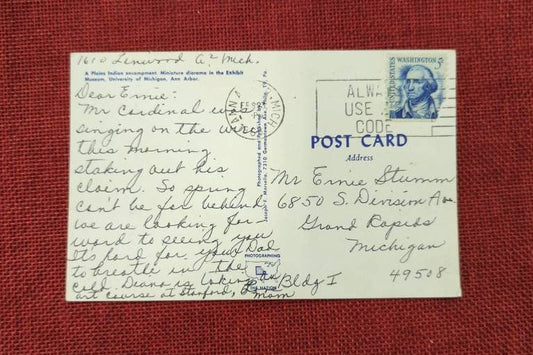 1610 Linwood A² Mich.
A Plains Indian encampment. Miniature diorama in the Exhibit
Museum, University of Michigan, Ann Arbor.
Dear Ernie:
Mr Cardinal was
singing on the wire
this morning
staking out his
claim. So spring
can't be far behind
we are looking for
ward to seeing you
Its hard for your Dad
to breathe in the
cold. Diana is taking an
art course at Stanford,
Mom
Bldg I
ANN
MICH
FEB
UNITED STATES
WASHINGTON 5c
ALWA
USE
CODE
POST CARD
Address
Mr Ernie Stumm
6850 S. Division Ave.
Grand Rapids
Michigan
49508
Photographed and Published by
PHOTOGRAPHING
THE NATION